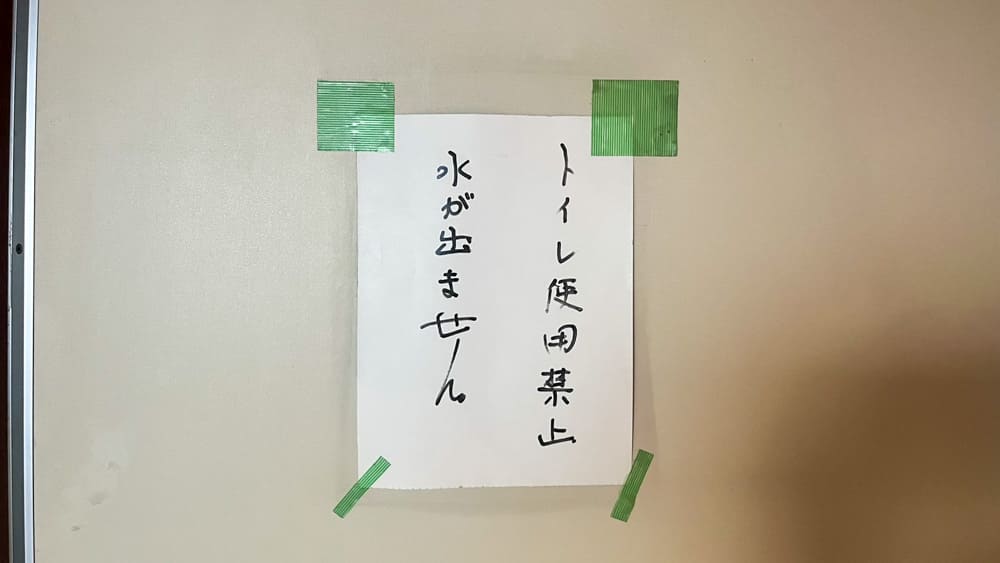 トイレ使用禁止
水が出ません。